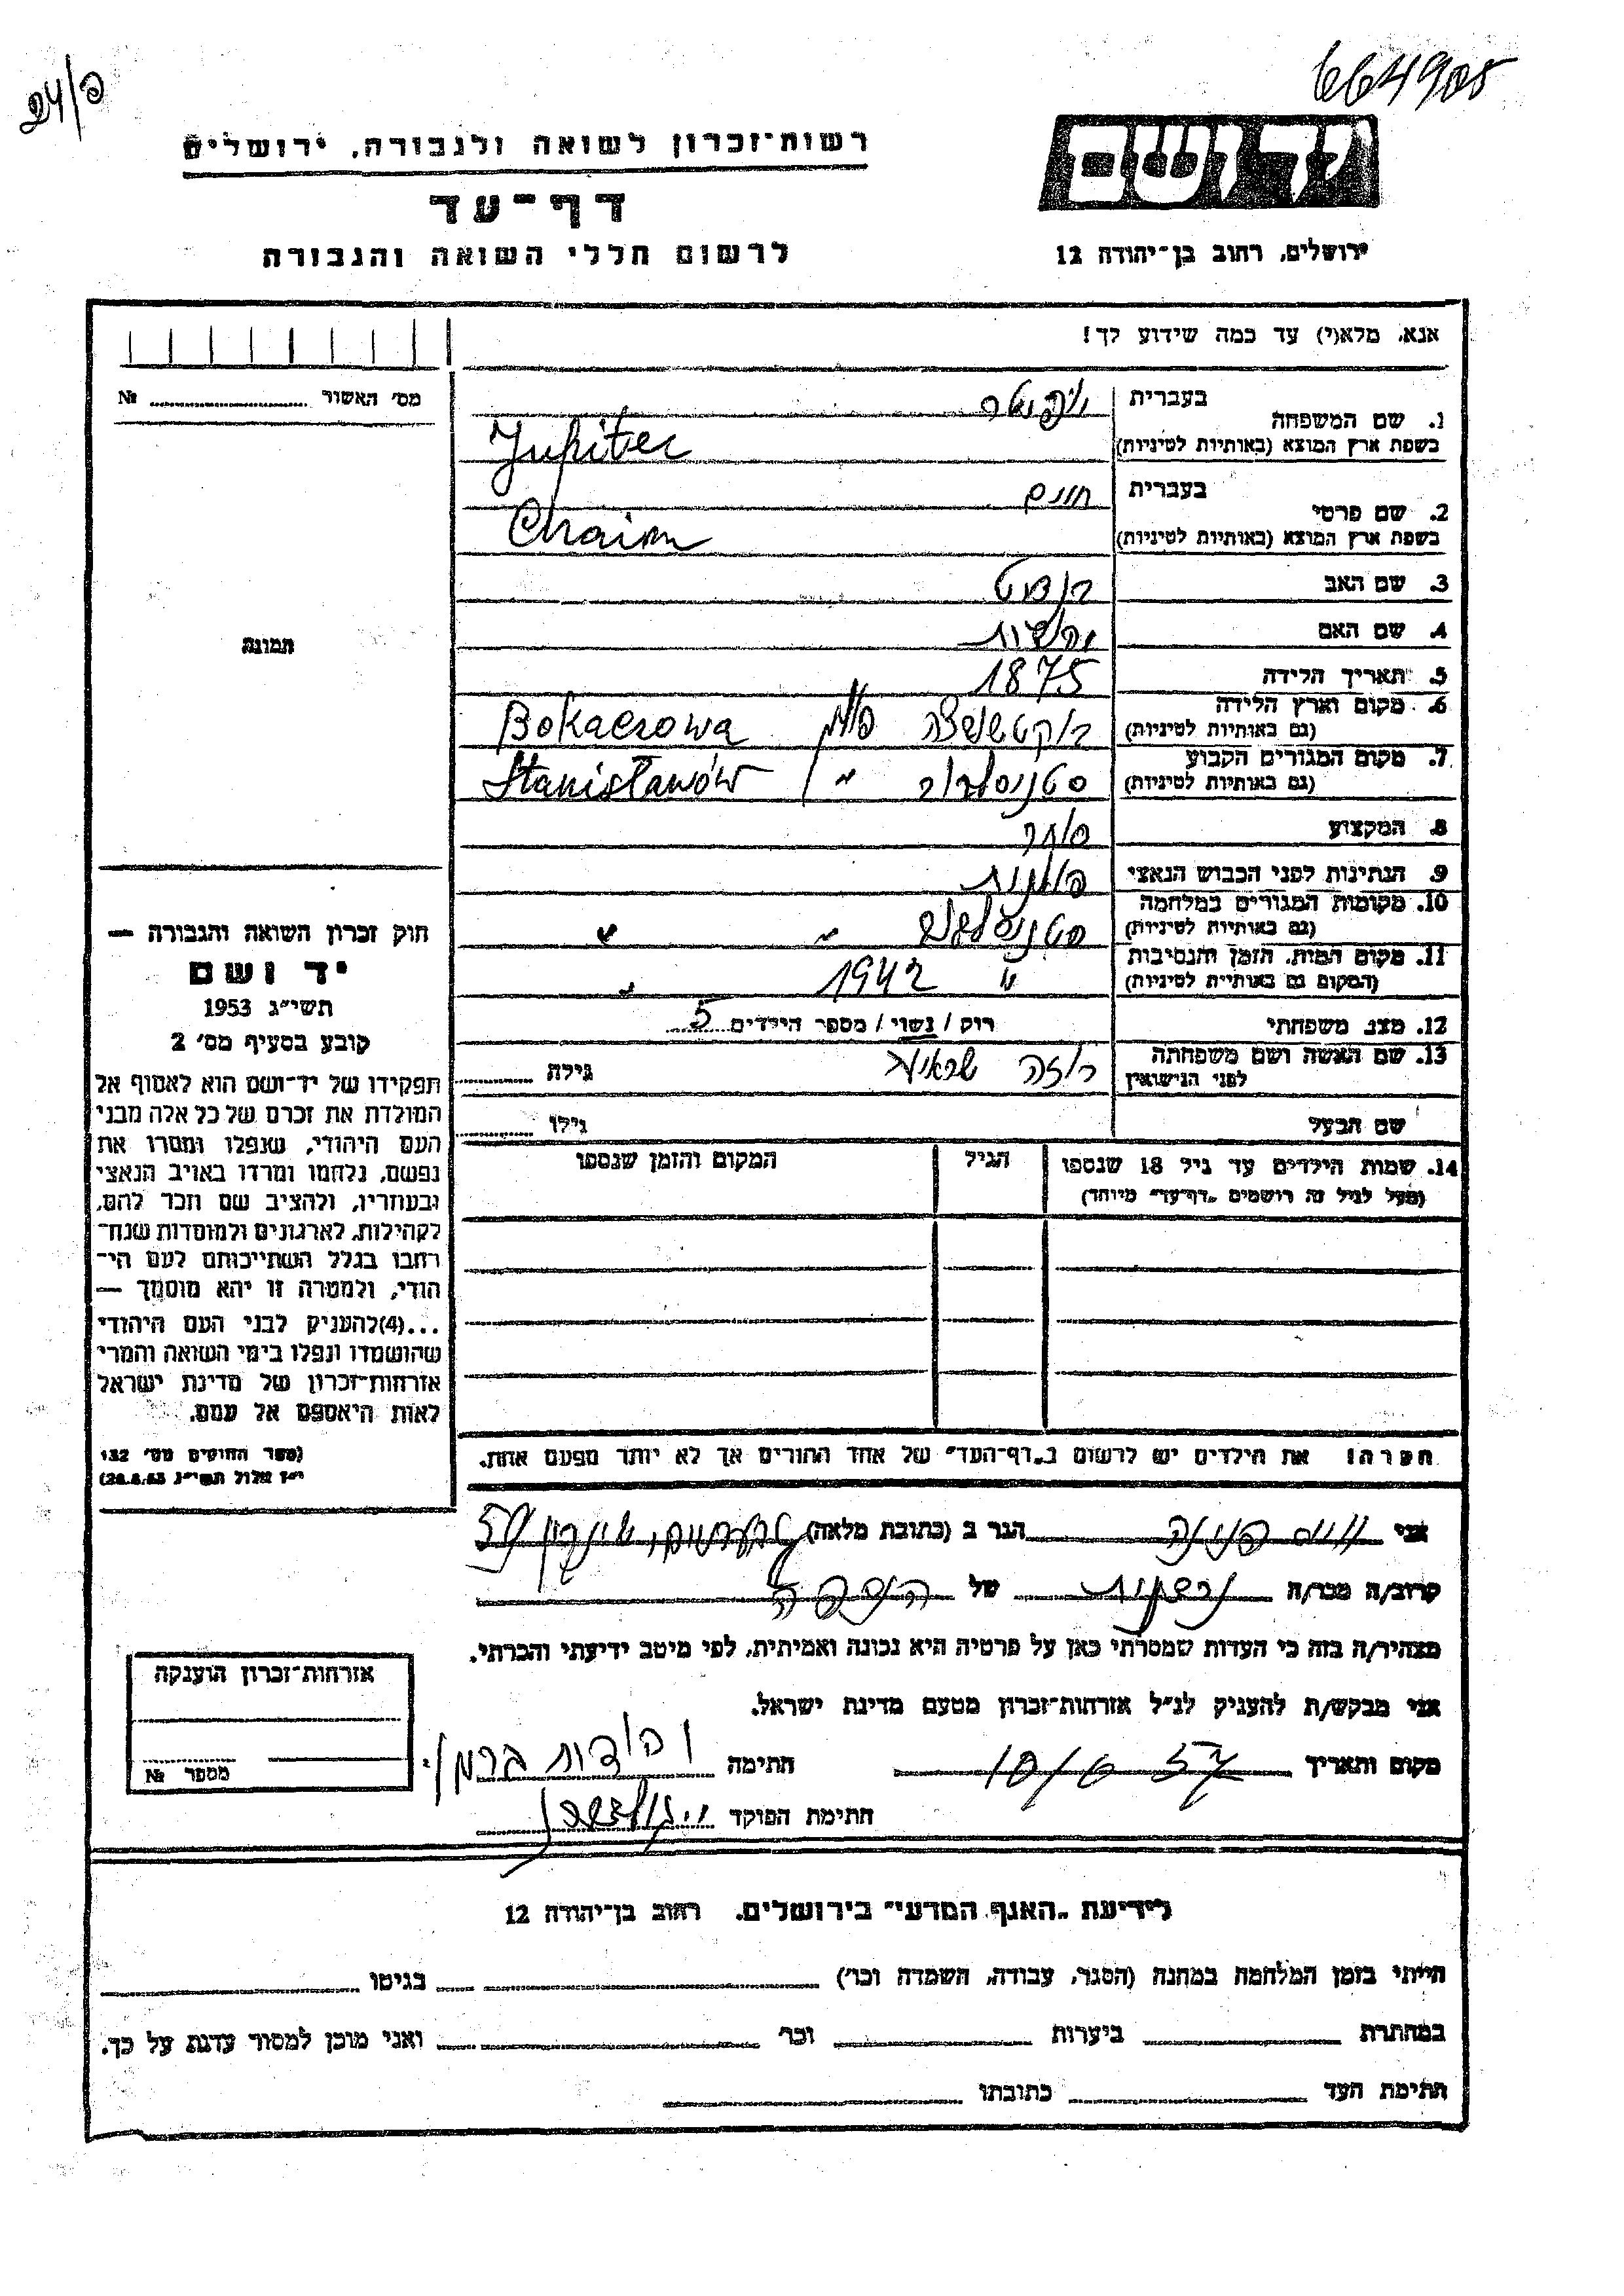 פ/24
664905
יד ושם
רשות־זכרון לשואה ולגבורה, ירושלים
דף־עד
לרשום חללי השואה והגבורה
ירושלים, רחוב בן־יהודה 12
אנא, מלא(י) עד כמה שידוע לך!
מס׳ האשור № 
1. שם המשפחה בעברית יופיטר
בשפת ארץ המוצא (באותיות לטיניות) Jupiter
2. שם פרטי בעברית חיים
בשפת ארץ המוצא (באותיות לטיניות) Chaim
3. שם האב
4. שם האם
5. תאריך הלידה 1875
6. מקום וארץ הלידה פולין
(גם באותיות לטיניות) Bokaerowa
7. מקום המגורים הקבוע סטניסלבוב "
(גם באותיות לטיניות) Stanisławów
8. המקצוע סוחר
9. הנתינות לפני הכבוש הנאצי פולנית
10. מקומות המגורים במלחמה סטניסלבוב " "
(גם באותיות לטיניות)
11. מקום המות, הזמן והנסיבות " 1942 "
(המקום גם באותיות לטיניות)
12. מצב משפחתי רוק / נשוי / מספר הילדים 5
13. שם האשה ושם משפחתה רוזה גילה
לפני הנישואין
שם הבעל גילו
14. שמות הילדים עד גיל 18 שנספו הגיל המקום והזמן שנספו
(מעל לגיל זה רושמים „דף־עד” מיוחד)
הערה! את הילדים יש לרשום ב„דף־העד” של אחד ההורים אך לא יותר מפעם אחת.
תמונה
חוק זכרון השואה והגבורה —
יד ושם
תשי״ג 1953
קובע בסעיף מס׳ 2
תפקידו של יד־ושם הוא לאסוף אל
המולדת את זכרם של כל אלה מבני
העם היהודי, שנפלו ומסרו את
נפשם, נלחמו ומרדו באויב הנאצי
ובעוזריו, ולהציב שם וזכר להם,
לקהילות, לארגונים ולמוסדות שנח־
רבו בגלל השתייכותם לעם הי־
הודי, ולמטרה זו יהא מוסמך —
...(4)להעניק לבני העם היהודי
שהושמדו ונפלו בימי השואה והמרי
אזרחות־זכרון של מדינת ישראל
לאות היאספם אל עמם.
(ספר החוקים מס׳ 132
י״ז אלול תשי״ג 28.8.53)
אני וויס פנינה הגר ב (כתובת מלאה)
קרוב/ה מכר/ה של הנספה
מצהיר/ה בזה כי העדות שמסרתי כאן על פרטיה היא נכונה ואמיתית, לפי מיטב ידיעתי והכרתי.
אני מבקש/ת להעניק לנ״ל אזרחות־זכרון מטעם מדינת ישראל.
מקום ותאריך 10/6 57 חתימה
חתימת הפוקד
אזרחות־זכרון הוענקה
מספר №
לידיעת „האגף המדעי” בירושלים, רחוב בן־יהודה 12
הייתי בזמן המלחמה במחנה (הסגר, עבודה, השמדה וכר׳) בגיטו
במחתרת ביערות וכר׳ ואני מוכן למסור עדות על כך.
חתימת העד כתובתו